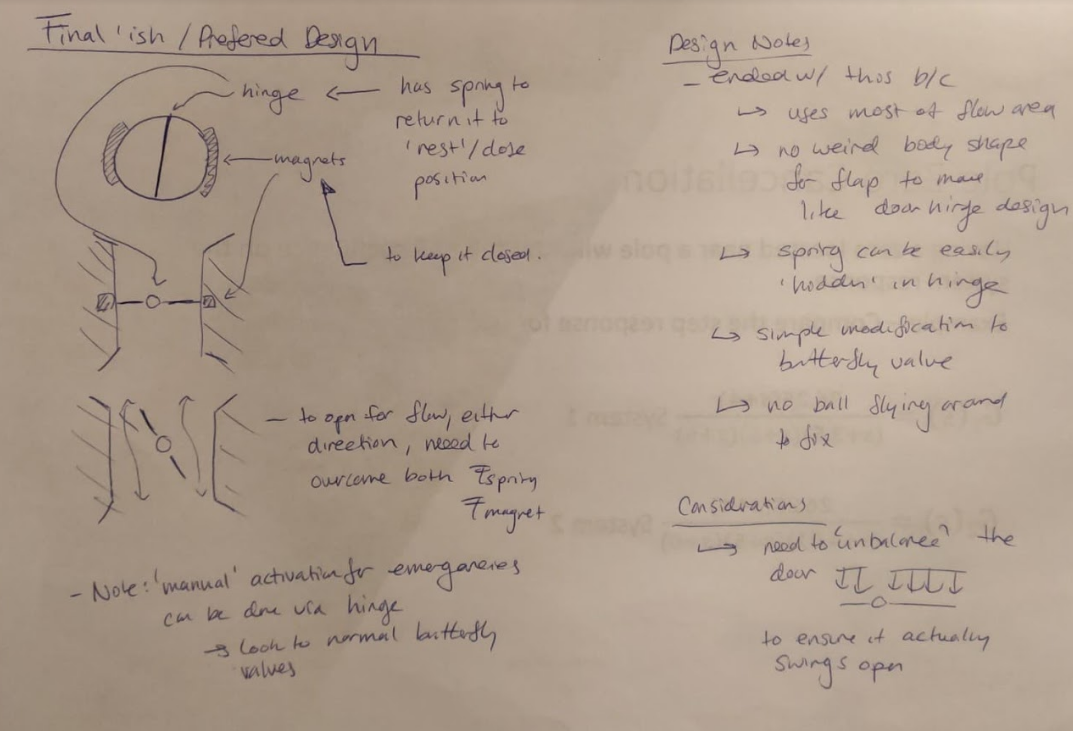 Final 'ish / Prefered Design
hinge ← has spring to
return it to
'rest'/close
position
magnets
to keep it closed.
- to open for flow, either
direction, need to
overcome both Fspring
Fmagnet
- Note: 'manual' activation for emergencies
can be done via hinge
→ look to normal butterfly
valves
Design Notes
- ended w/ this b/c
↳ uses most of flow area
↳ no weird body shape
for flap to move
like door hinge design
↳ spring can be easily
'hidden' in hinge
↳ simple modification to
butterfly valve
↳ no ball flying around
to fix
Considerations
↳ need to "unbalance" the
door
to ensure it actually
swings open